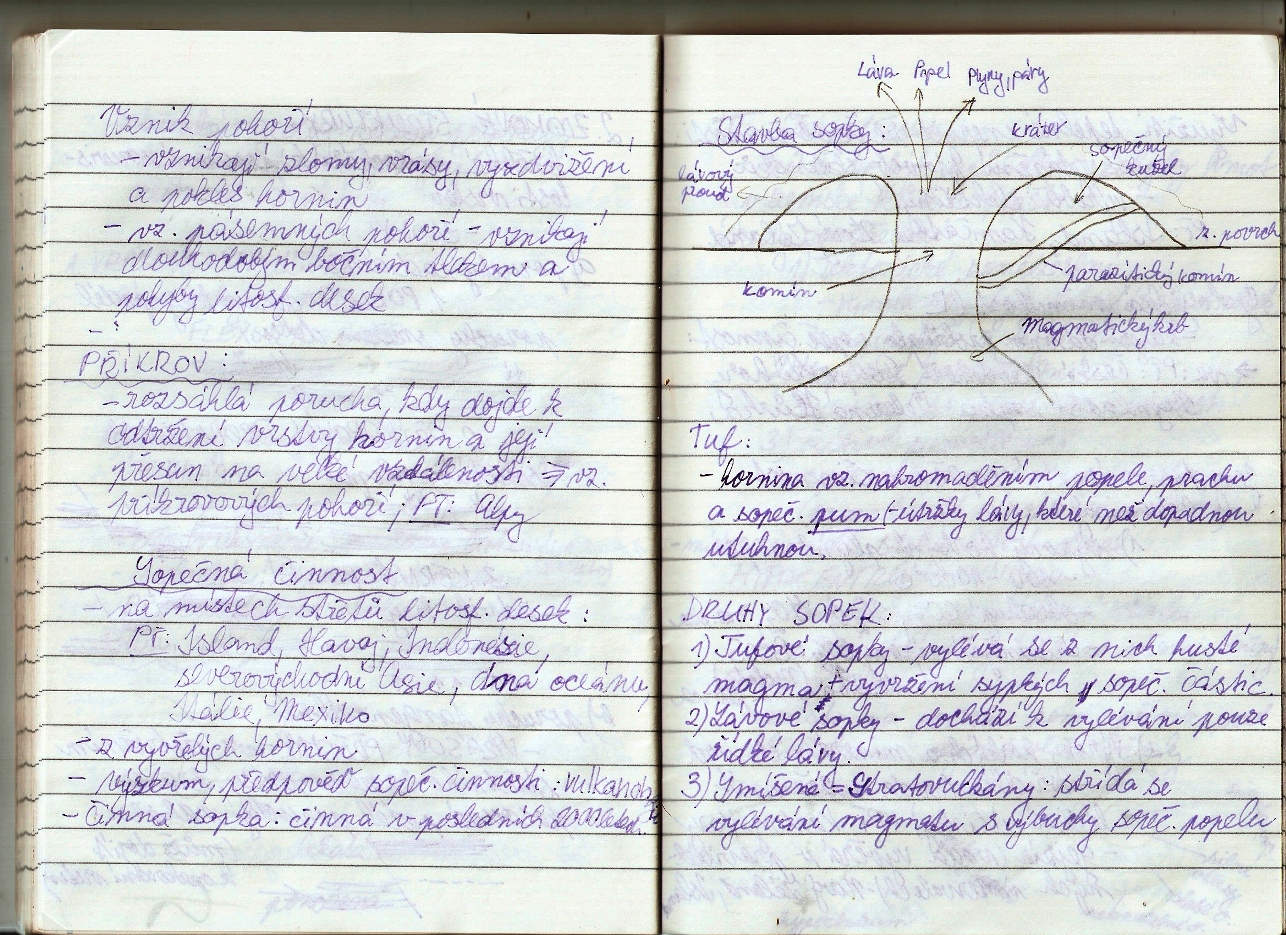 Vznik pohoří
- vznikají zlomy, vrásy, vyzdvižení
a pokles hornin
- vz. pásemných pohoří - vznikají
dlouhodobým bočním tlakem a
pohyby litosf. desek
-
PŘÍKROV:
- rozsáhlá porucha, kdy dojde k
odtržení vrstvy hornin a její
přesun na velké vzdálenosti ⇒ vz.
příkrovových pohoří; PŤ: Alpy
Sopečná činnost
- na místech střetů litosf. desek:
PŤ: Island, Havaj, Indonésie,
severovýchodní Asie, dna oceánu,
Itálie, Mexiko
- z vyvřelých hornin
- výzkum, předpověď sopeč. činnosti:
- Činná sopka: činná v posledních
Láva Popel Plyny, páry
Stavba sopky:
kráter
sopečný
kužel
lávový
proud
z. povrch
komín
parazitický komín
magmatický krb
Tuf:
- hornina vz. nahromaděním popele, prachu
a sopeč. pum - útržky lávy, které než dopadnou
utuhnou.
DRUHY SOPEK:
1) Tufové sopky - vylévá se z nich husté
magma + vyvržení sypkých sopeč. částic.
2) Lávové sopky - dochází k vylévání pouze
řídké lávy.
3) Smíšená = Stratovulkány: střídá se
vylévání magmatu s výbuchy sopeč. popelu